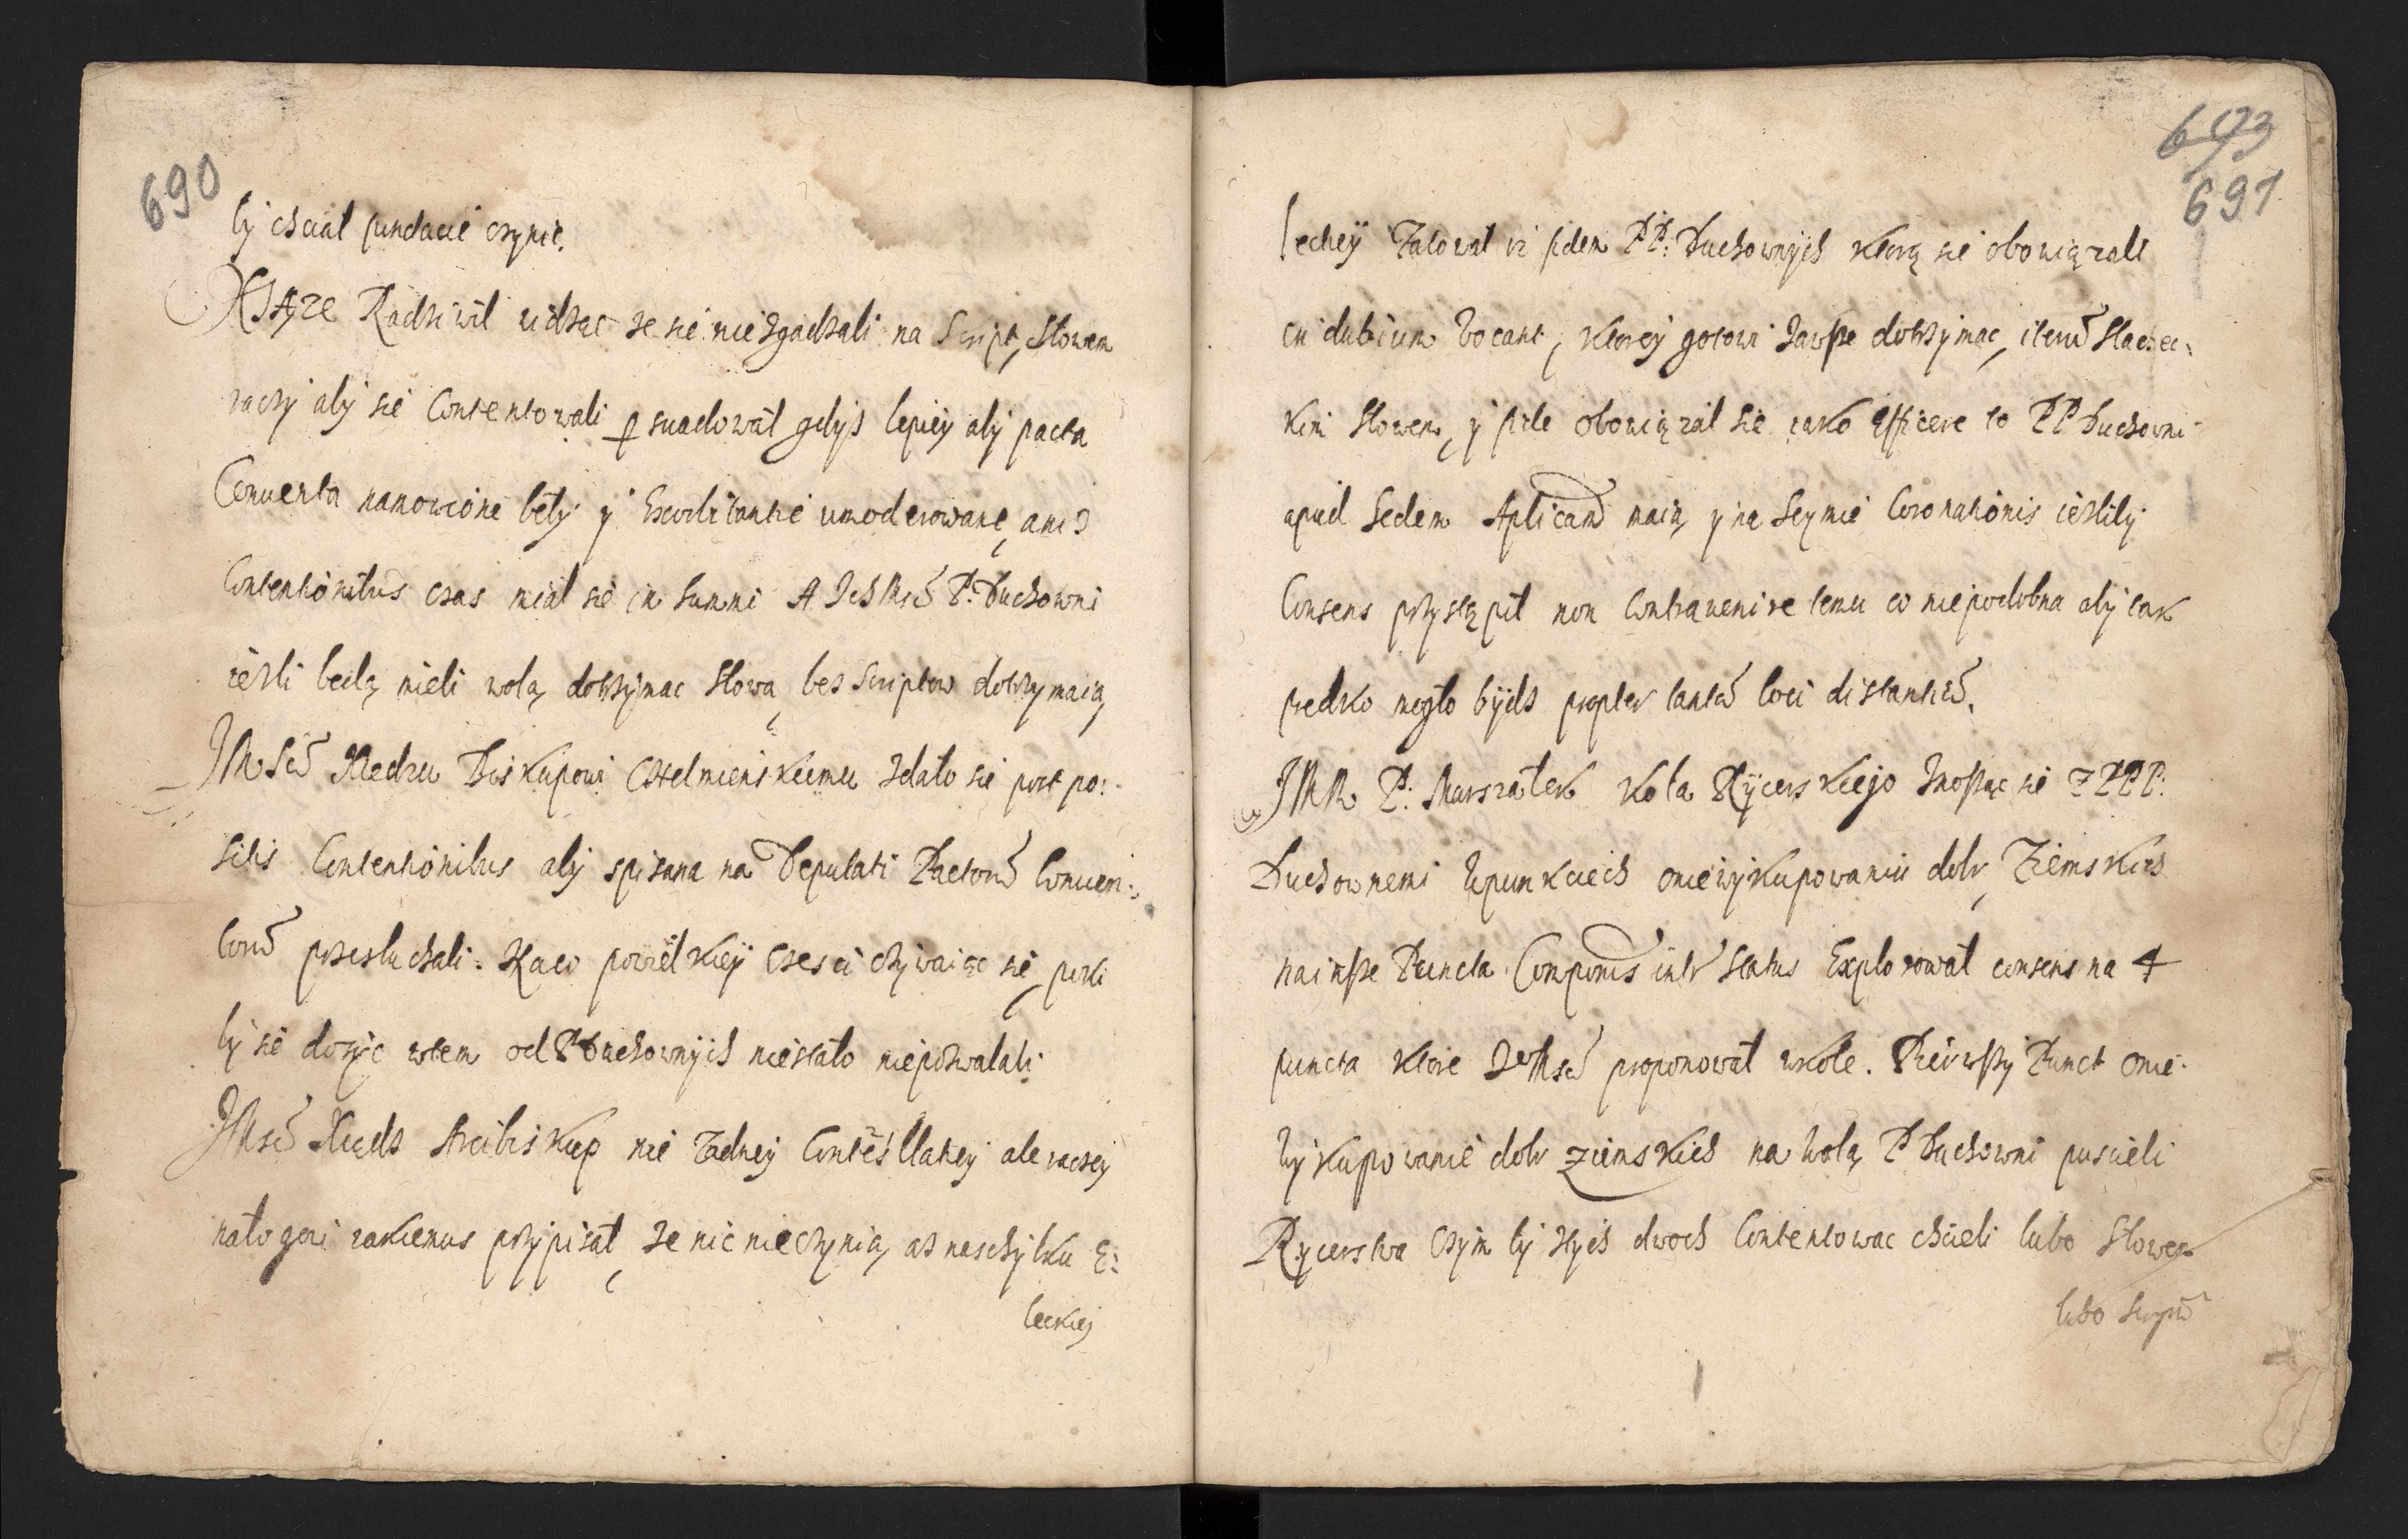 690
by chciał fundacie czynic.
XIąze Radziwil widząc ze sie niezgadzali na Script, słowem
raczy aby sie Contentowali psuadował gdyz lepiey aby pacta
Conuenta namowione beły y Exorbitantie umoderowane, anis
Contentionibus czas miał sie in summi A IchMsć P. Duchowni
iezli będą mieli wolą dotrzymac słowa, bes scriptow dotrzymaią,
JMSć Xiedzu Biskupowi Chelmienskiemu zdało sie post po:
sitis Contentionibus aby spisana na Deputati Pactorũ Conuen:
torũ przesłuchali. Na co powielkiey czesci ozywaiąc się, poki
by sie dosyc wtem od P Duchownych niestało niepozwalali.
JMsć Xiądz Arcibiskup nie zadney ale raczey
natogoni iakiemus przypisał, ze nic nieczynią, az naschyłku E:
lectiey
693
691
lectiey Załował iz fidem PP. Duchownych ktorą sie obowiązali
in dubium vocant, ktorey gotowi zawsze dotrzymac, iterũ szlachec:
kim słowem, y fide obowiązał sie iako efficere to PP Duchowni
apud Sedem Aplicam maią y na Seymie Coronationis iezliby
Consens przystąpił non Contrauenire temu co niepodobna aby tak
predko mogło bydz propter tantã loci distantiã.
JMM P. Marszałek Koła Rycerskiego znosząc sie z PPP.
Duchownemi wpunkciech oniewykupowaniu dobr, Ziemskich
nainsze Puncta Componis intr status Explorował consens na 4
puncta ktore JeMsć proponował wkole. Pierwszy Punct onie:
wykupowanie dobr ziemskich na wolą P Duchowni puscieli
Rycerstwa czym by ztych dwoch Contentowac chcieli lubo słowem
lubo scryptẽ